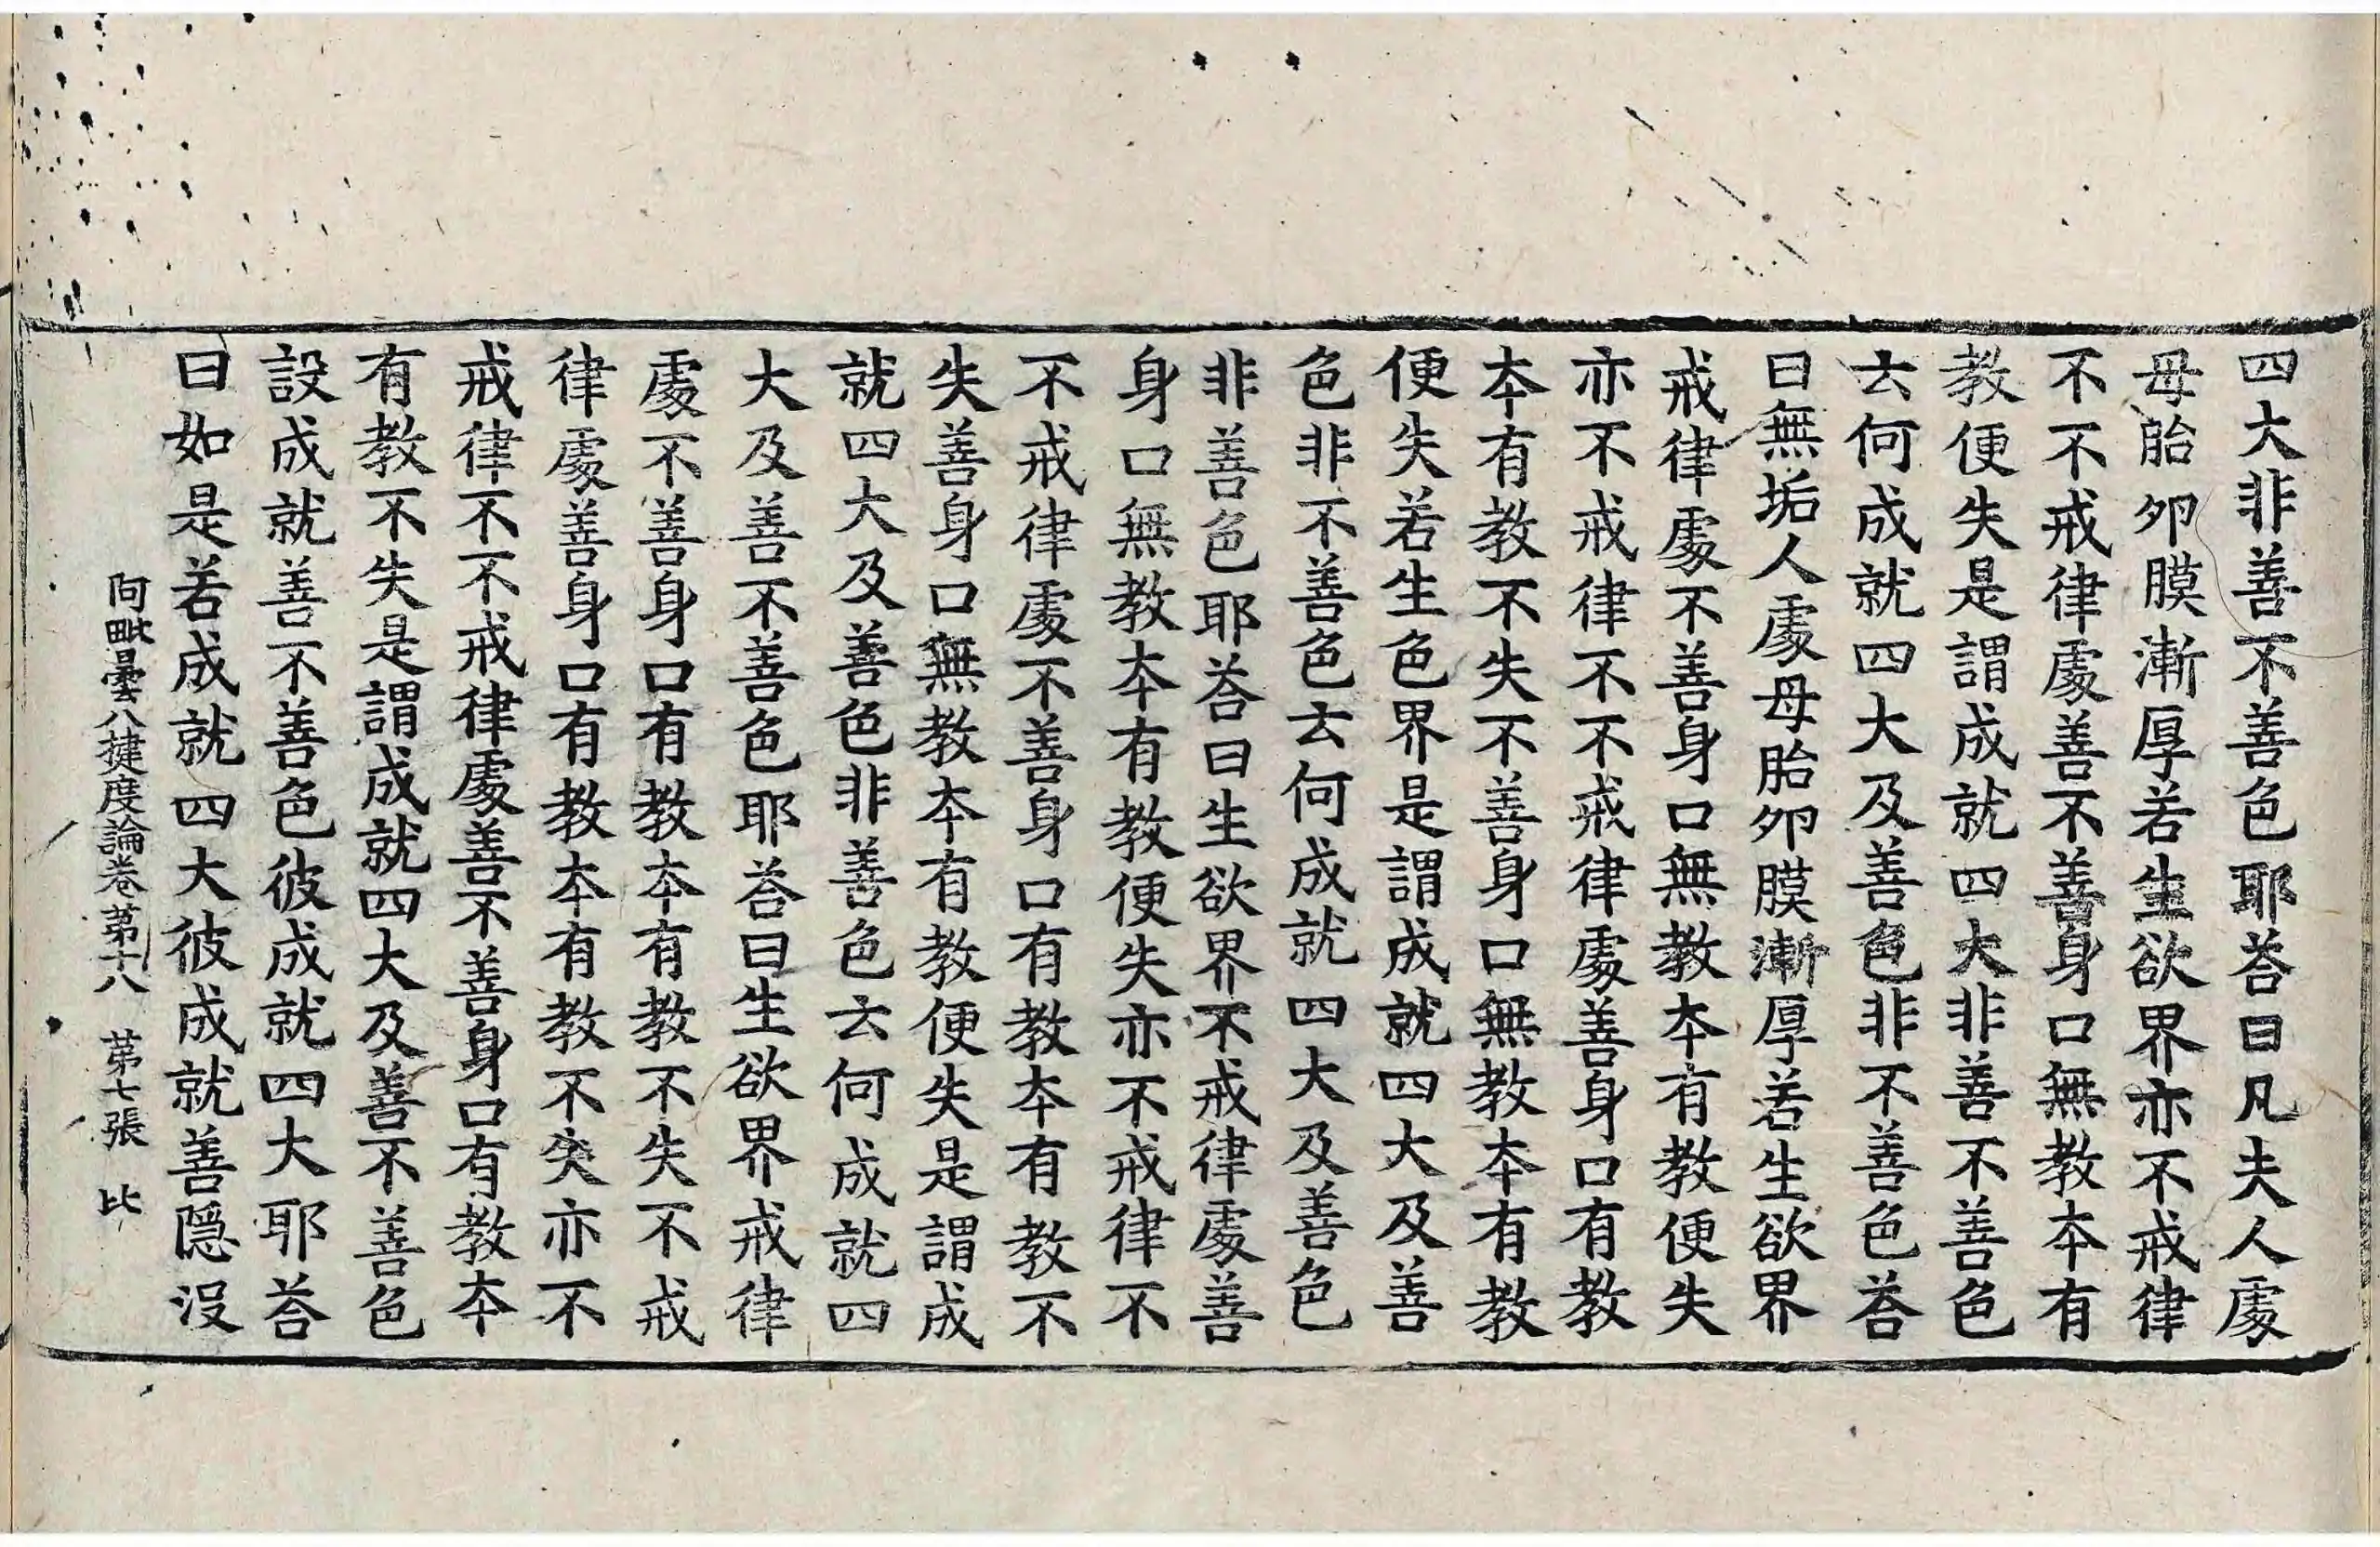 四大非善不善色耶荅曰凡夫人處
母胎卵膜漸厚若生欲界亦不戒律
不不戒律處善不善身口無教本有
教便失是謂成就四大非善不善色
云何成就四大及善色非不善色荅
曰無垢人處母胎卵膜漸厚若生欲界
戒律處不善身口無教本有教便失
亦不戒律不不戒律處善身口有教
本有教不失不善身口無教本有教
便失若生色界是謂成就四大及善
色非不善色云何成就四大及善色
非善色耶荅曰生欲界不戒律處善
身口無教本有教便失亦不戒律不
不戒律處不善身口有教本有教不
失善身口無教本有教便失是謂成
就四大及善色非善色云何成就四
大及善不善色耶荅曰生欲界戒律
處不善身口有教本有教不失不戒
律處善身口有教本有教不失亦不
戒律不不戒律處善不善身口有教本
有教不失是謂成就四大及善不善色
設成就善不善色彼成就四大耶荅
曰如是若成就四大彼成就善隱沒
阿毗曇八揵度論卷第十八　第七張　比